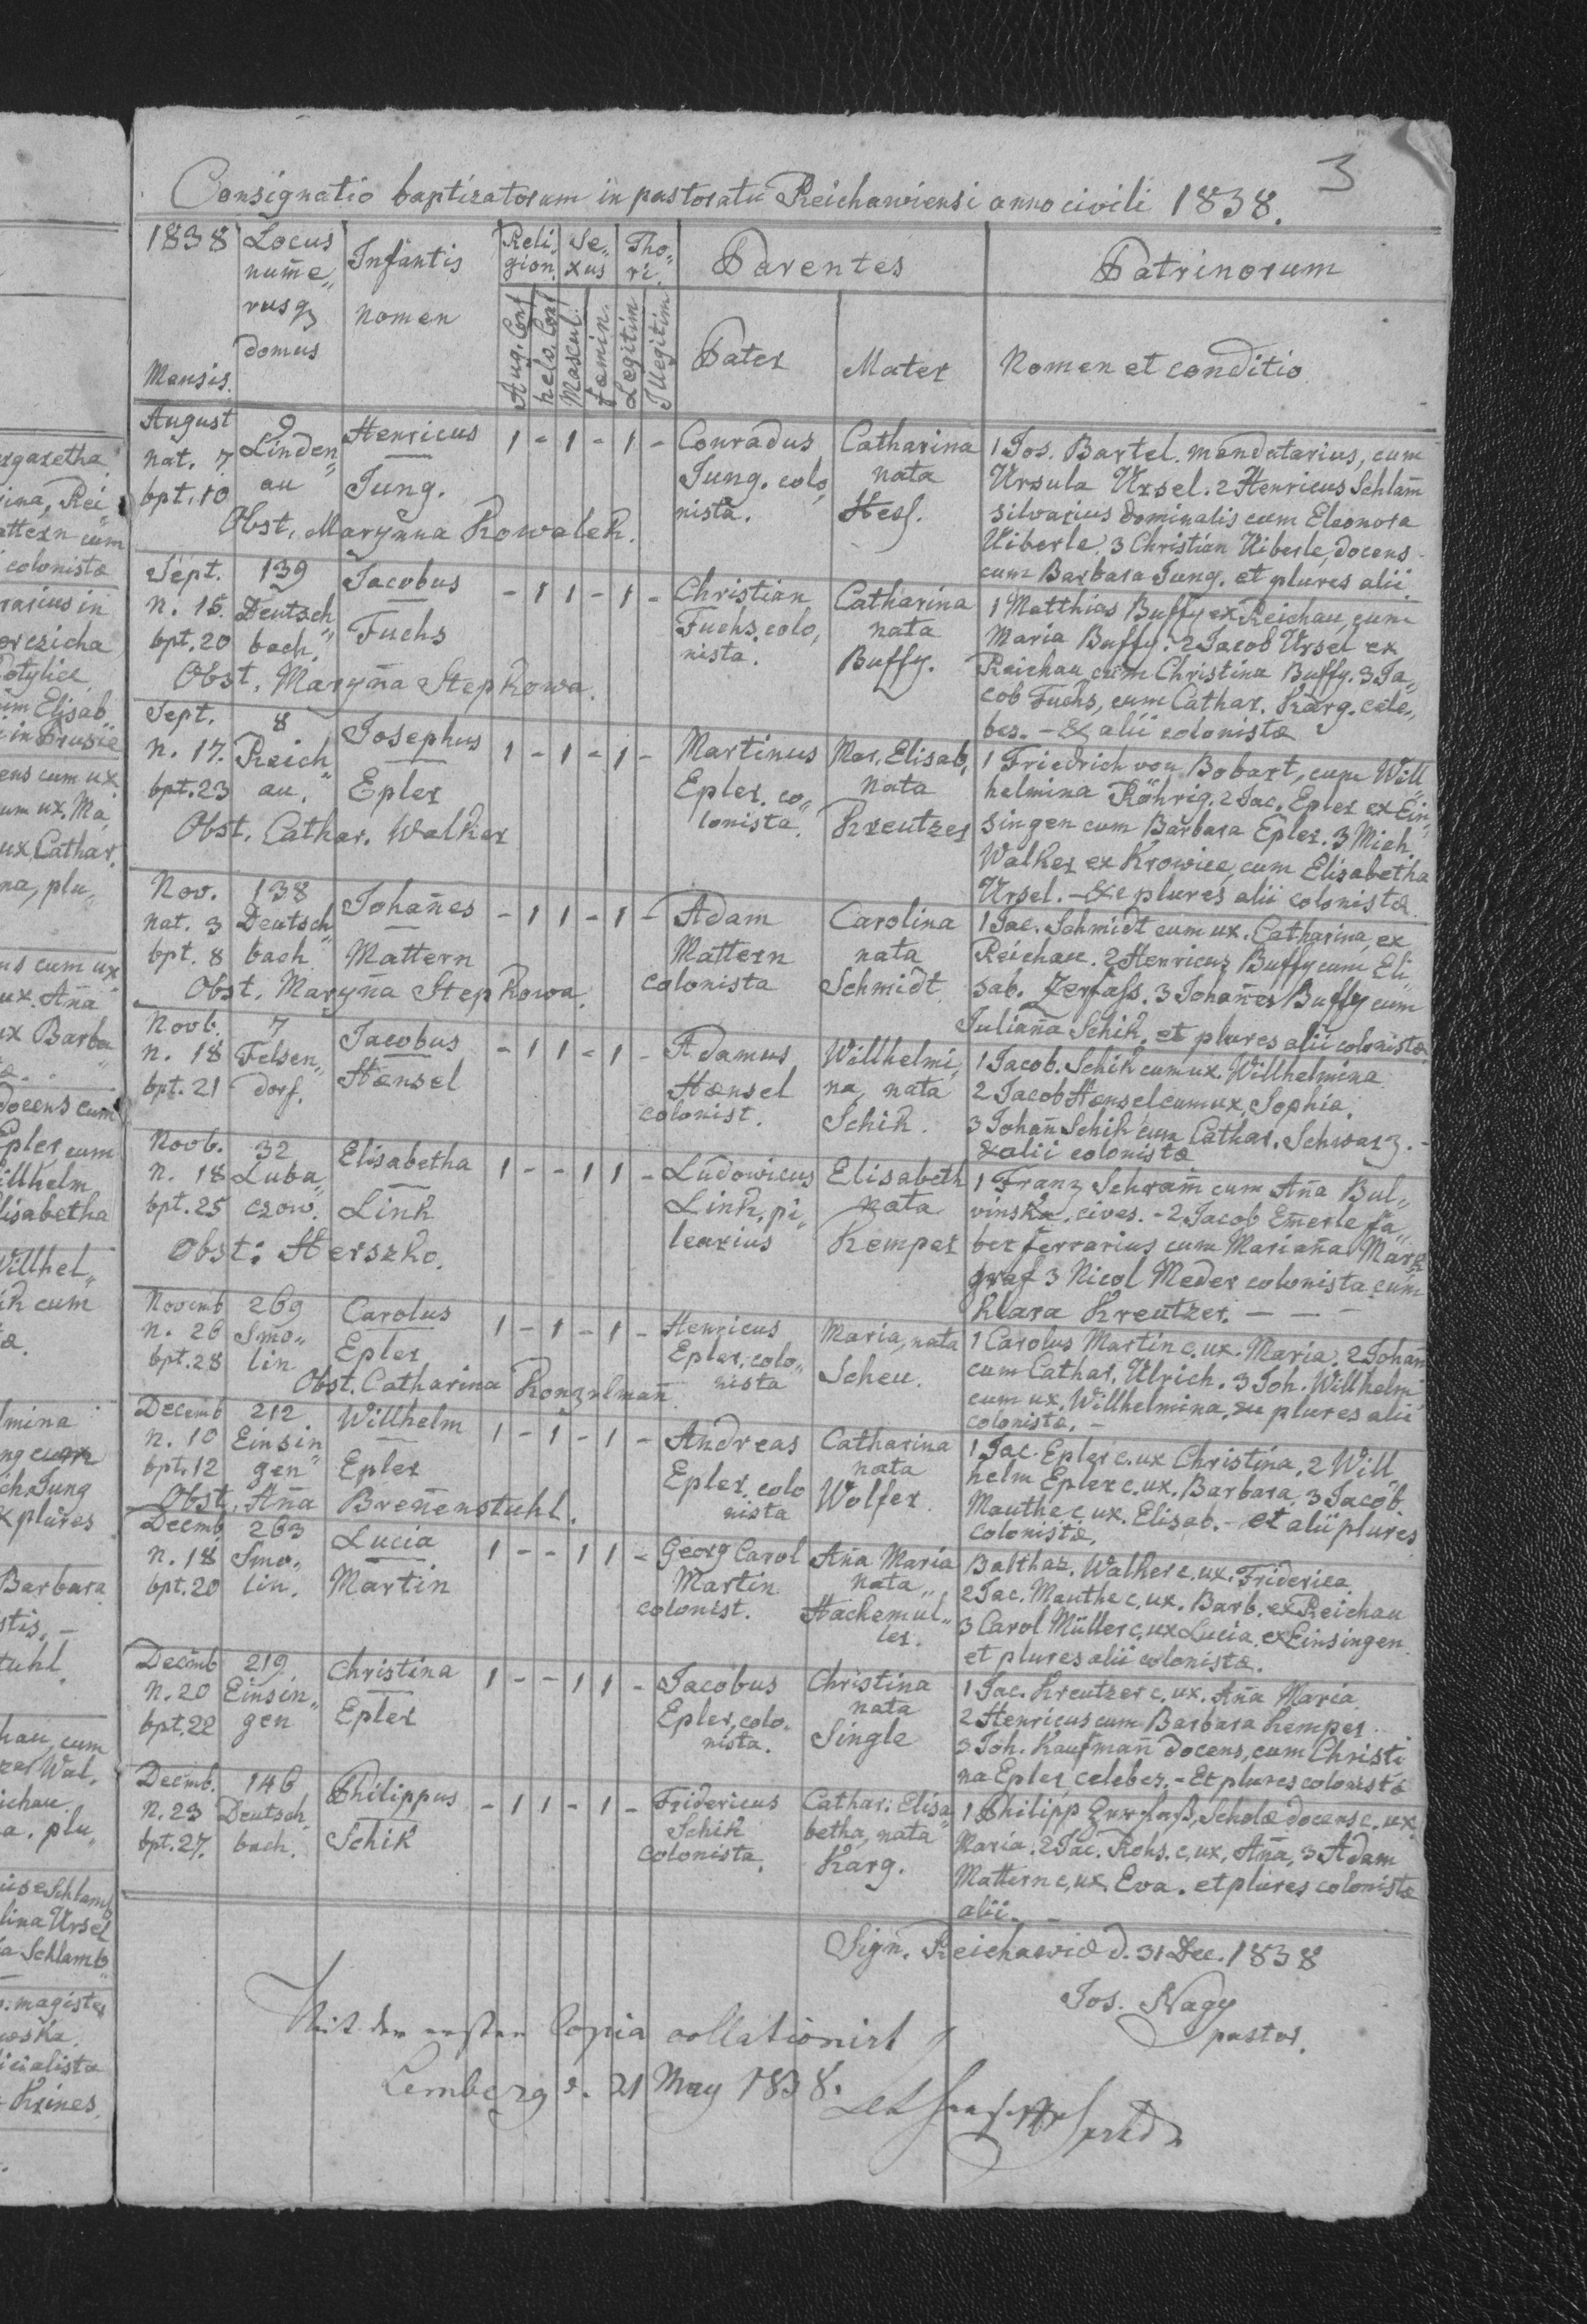 3
Consignatio baptizatorum in pastoratu Reichawiensi anno civili 1838.
1838 Locus nume„ rusq domus Infantis nomen Reli gion. Se„ xus Tho„ ri. Parentes Patrinorum
Mensis. Aug. Conf helv. Conf Mascul. Femin. Legitim Illegitim Pater Mater Nomen et conditio
August 9 Henricus 1 - 1 - 1 - Conradus Catharina 1 Jos. Bartel. mandatarius, cum
nat. 7 Linden„ Jung. colo„ nata Ursula Ursel. 2 Henricus Schlam̄
bpt. 10 au Jung. nista. Hess. silvarius dominalis cum Eleonora
Obst. Marynna Kowalek. Uiberle. 3 Christian Uiberle, docens
cum Barbara Jung. et plures alii.
Sept. 139 Jacobus - 1 1 - 1 - Christian Catharina 1 Matthias Buffy ex Reichau, cum
n. 15. Deutsch„ Fuchs, colo„ nata Maria Buffy. 2 Jacob Ursel ex
bpt. 20 bach. Fuchs nista. Buffy. Reichau cum Christina Buffy. 3 Ja„
Obst. Maryn̄a Stepkowa. cob Fuchs, cum Cathar. Karg. cele„
bes. - & alii colonistæ
Sept. 8 Josephus 1 - 1 - 1 - Martinus Mar. Elisab. 1 Friedrich von Bobart, cum Will„
n. 17. Reich„ Epler. co„ nata helmina Röhrig. 2 Jac. Epler ex Ein„
bpt. 23 au. Epler lonista. Kreutzer singen cum Barbara Epler. 3 Mich.
Obst. Cathar. Walker Walker ex Krowice, cum Elisabetha
Ursel. - & plures alii colonistæ.
Nov. 138 Johan̄es - 1 1 - 1 - Adam Carolina 1 Jac. Schmidt cum ux. Catharina, ex
nat. 3 Deutsch„ Mattern nata Reichau. 2 Henricus Buffy cum Eli„
bpt. 8 bach Mattern colonista Schmidt. sab. Zerfass. 3 Johan̄es Buffy cum
Obst. Maryn̄a Stepkowa. Julian̄a Schik. et plures alii colonistæ
Novb. 7 Jacobus - 1 1 - 1 - Adamus Willhelmi„ 1 Jacob. Schik cum ux. Willhelmina.
n. 18 Felsen„ Hænsel na, nata 2 Jacob Hænsel cum ux. Sophia.
bpt. 21 dorf. Hænsel colonist. Schik. 3 Johan̄ Schik cum Cathar. Schwarz. -
& alii colonistæ
Novb. 32 Elisabetha 1 - - 1 1 - Ludowicus Elisabeth 1 Franz Schram̄ cum An̄a Bul„
n. 18 Luba„ Link, pi„ nata vinska, cives. - 2 Jacob Em̄erle fa„
bpt. 25 czow. Link learius Kemper ber ferrarius cum Marian̄a Mark
Obst: Herszko. graf 3 Nicol Meder colonista cum
Klara Kreutzer. — — —
Novemb 269 Carolus 1 - 1 - 1 - Henricus Maria, nata 1 Carolus Martin c. ux. Maria. 2 Johan̄
n. 26 Smo„ Epler, colo„ Scheu. cum Cathar. Ulrich. 3 Joh. Willhelm
bpt. 28 lin Epler nista cum ux. Willhelmina, plures alii
Obst. Catharina Konzelman̄ colonistæ. -
Decemb 212 Willhelm 1 - 1 - 1 - Andreas Catharina 1 Jac. Epler c. ux Christina. 2 Will„
n. 10 Einsin„ Epler. colo nata helm Epler c. ux. Barbara. 3 Jacob
bpt. 12 gen Epler nista Wolfer. Mauthe c. ux. Elisab. - et alii plures
Obst. An̄a Bren̄enstuhl. colonistæ.
Decmb 263 Lucia 1 - - 1 1 - Georg Carol An̄a Maria Balthaz. Walker c. ux. Friderica.
n. 18 Smo„ Martin nata 2 Jac. Mauthe c. ux. Barb. ex Reichau
bpt. 20 lin. Martin colonist. Hachemul„ 3 Carol Müller c. ux Lucia ex Einsingen
ler. et plures alii colonistæ.
Decmb 219 Christina 1 - - 1 1 - Jacobus Christina 1 Jac. Kreutzer c. ux. An̄a Maria
n. 20 Einsin„ Epler, colo„ nata 2 Henricus cum Barbara Kemper.
bpt. 22 gen Epler nista. Single 3 Joh. Kaufman̄ docens, cum Christi„
na Epler celebes. - Et plures colonistæ
Decmb. 146 Philippus - 1 1 - 1 - Fridericus Cathar. Elisa„ 1 Philipp Zerfaß, Scholæ docens c. ux.
n. 23 Deutsch„ Schik betha, nata Maria. 2 Jac. Rohs. c. ux. An̄a, 3 Adam
bpt. 27. bach. Schik colonista. Karg. Mattern c. ux. Eva. et plures colonistæ
alii.
Sign. Reichawiæ d. 31 Dec. 1838
Jos. Nagy
pastor.
Mit der ersten Copia collationirt
Lemberg d. 21 May 1838.